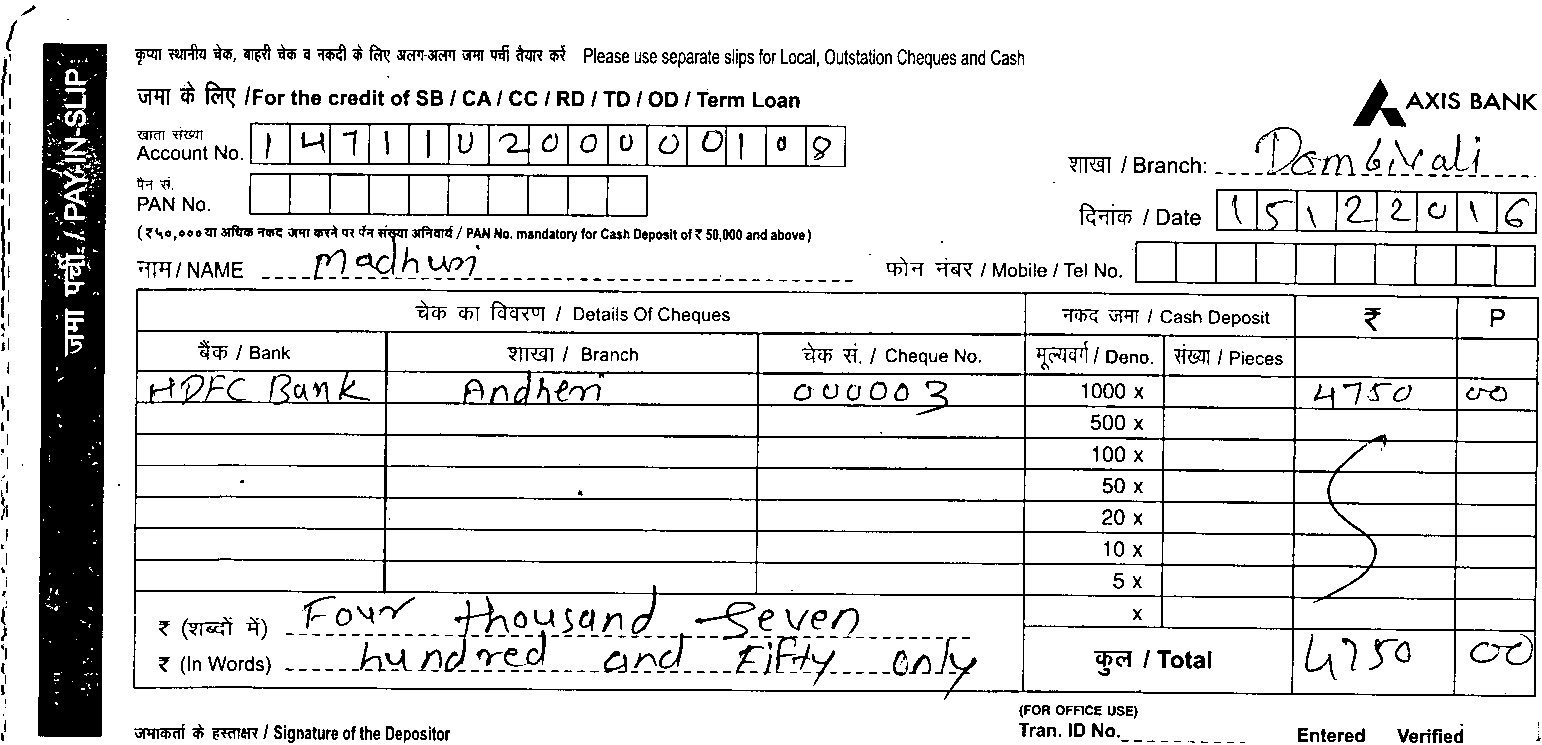 जमा पर्ची / PAY-IN-SLIP
कृप्या स्थानीय चेक, बाहरी चेक व नकदी के लिए अलग-अलग जमा पर्ची तैयार करें Please use separate slips for Local, Outstation Cheques and Cash
जमा के लिए /For the credit of SB / CA / CC / RD / TD / OD / Term Loan
AXIS BANK
खाता संख्या
Account No. 14711U200000108
शाखा / Branch: Dombivali
पैन सं.
PAN No.
दिनांक / Date 15122016
(₹५०,००० या अधिक नकद जमा करने पर पॅन संख्या अनिवार्य / PAN No. mandatory for Cash Deposit of ₹ 50,000 and above)
नाम / NAME Madhuri
फोन नंबर / Mobile / Tel No.
चेक का विवरण / Details Of Cheques नकद जमा / Cash Deposit ₹ P
बैंक / Bank शाखा / Branch चेक सं. / Cheque No. मूल्यवर्ग / Deno. संख्या / Pieces
HDFC Bank Andheri 000003 1000 x 4750 00
500 x
100 x
50 x
20 x
10 x
5 x
x
₹ (शब्दों में) Four thousand Seven
₹ (In Words) hundred and Fifty only
कुल / Total 4750 00
जमाकर्ता के हस्ताक्षर / Signature of the Depositor
(FOR OFFICE USE)
Tran. ID No. Entered Verified